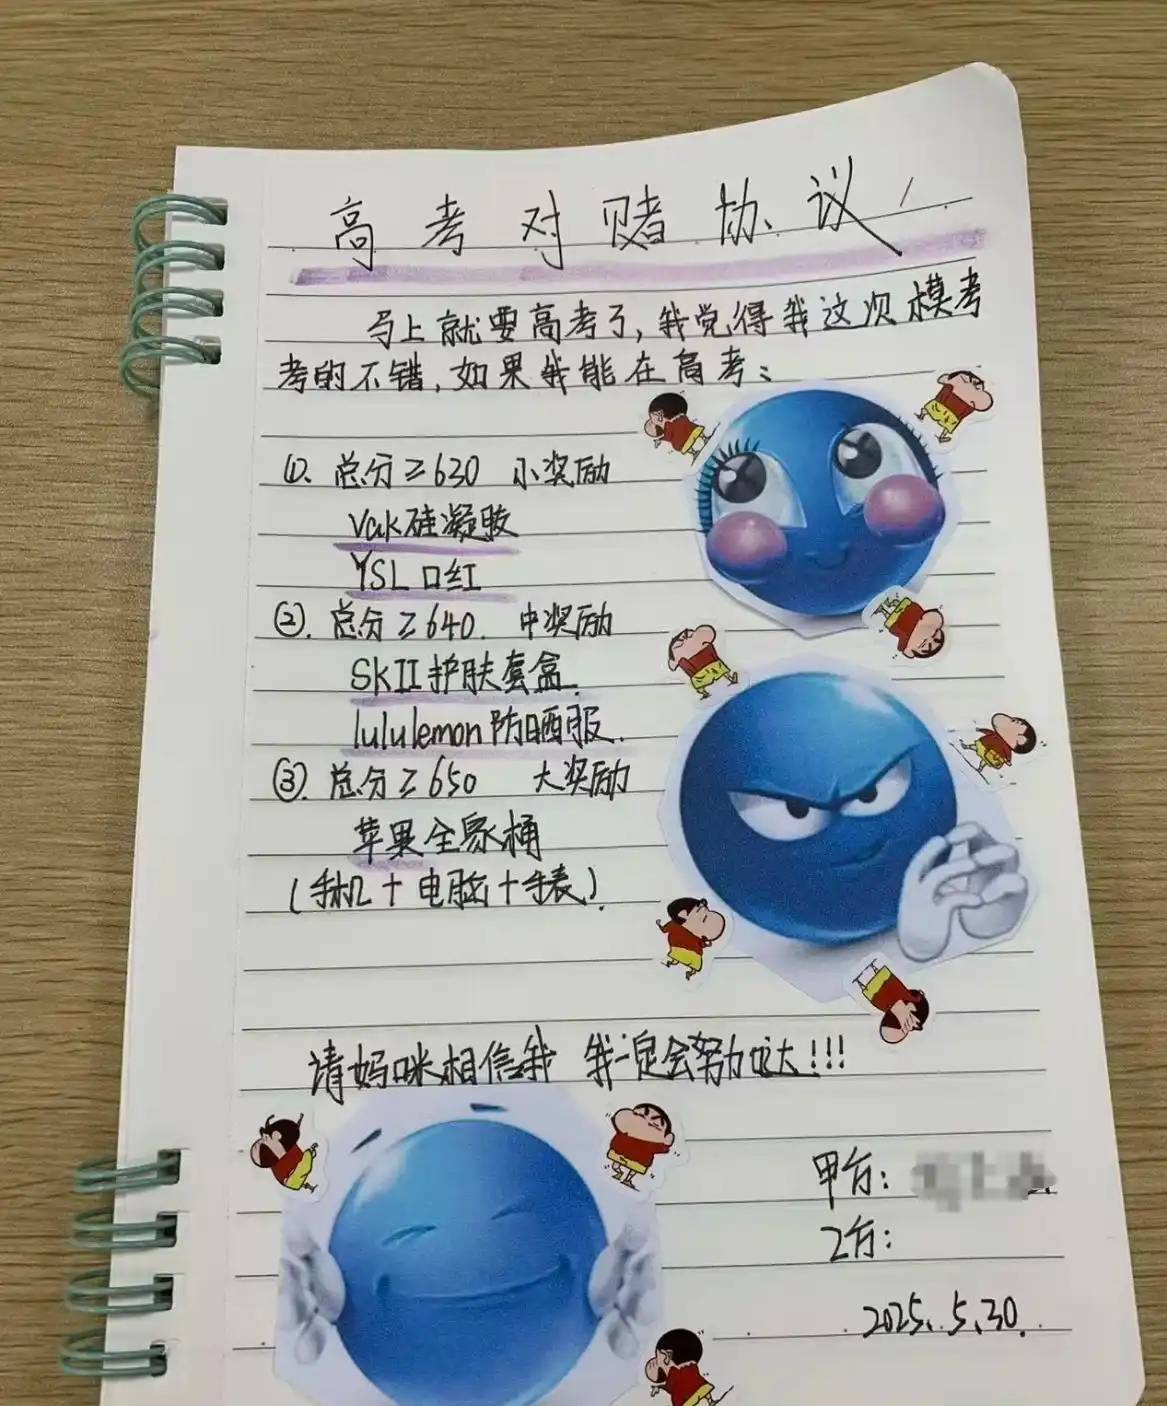 高考对赌协议
马上就要高考了,我觉得我这次模考
考的不错,如果我能在高考:
①. 总分≥630 小奖励
Vak硅凝胶
YSL口红
②. 总分≥640. 中奖励
SKII护肤套盒.
lululemon防晒服.
③. 总分≥650 大奖励
苹果全家桶
(手机+电脑+手表).
请妈咪相信我 我一定会努力哒!!!
甲方:
乙方:
2025.5.30.